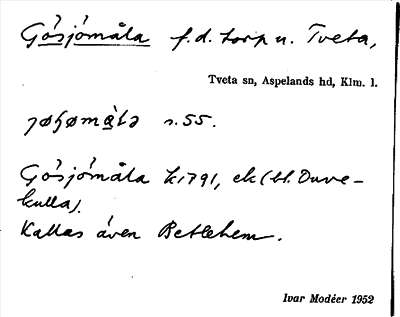 Gösjömåla f.d. torp u. Tveta,
Tveta sn, Aspelands hd, Klm. l.
s.55.
Gösjömåla k1791, ek (bl. Duve-
kulla).
Kallas även Betlehem.
Ivar Modéer 1952